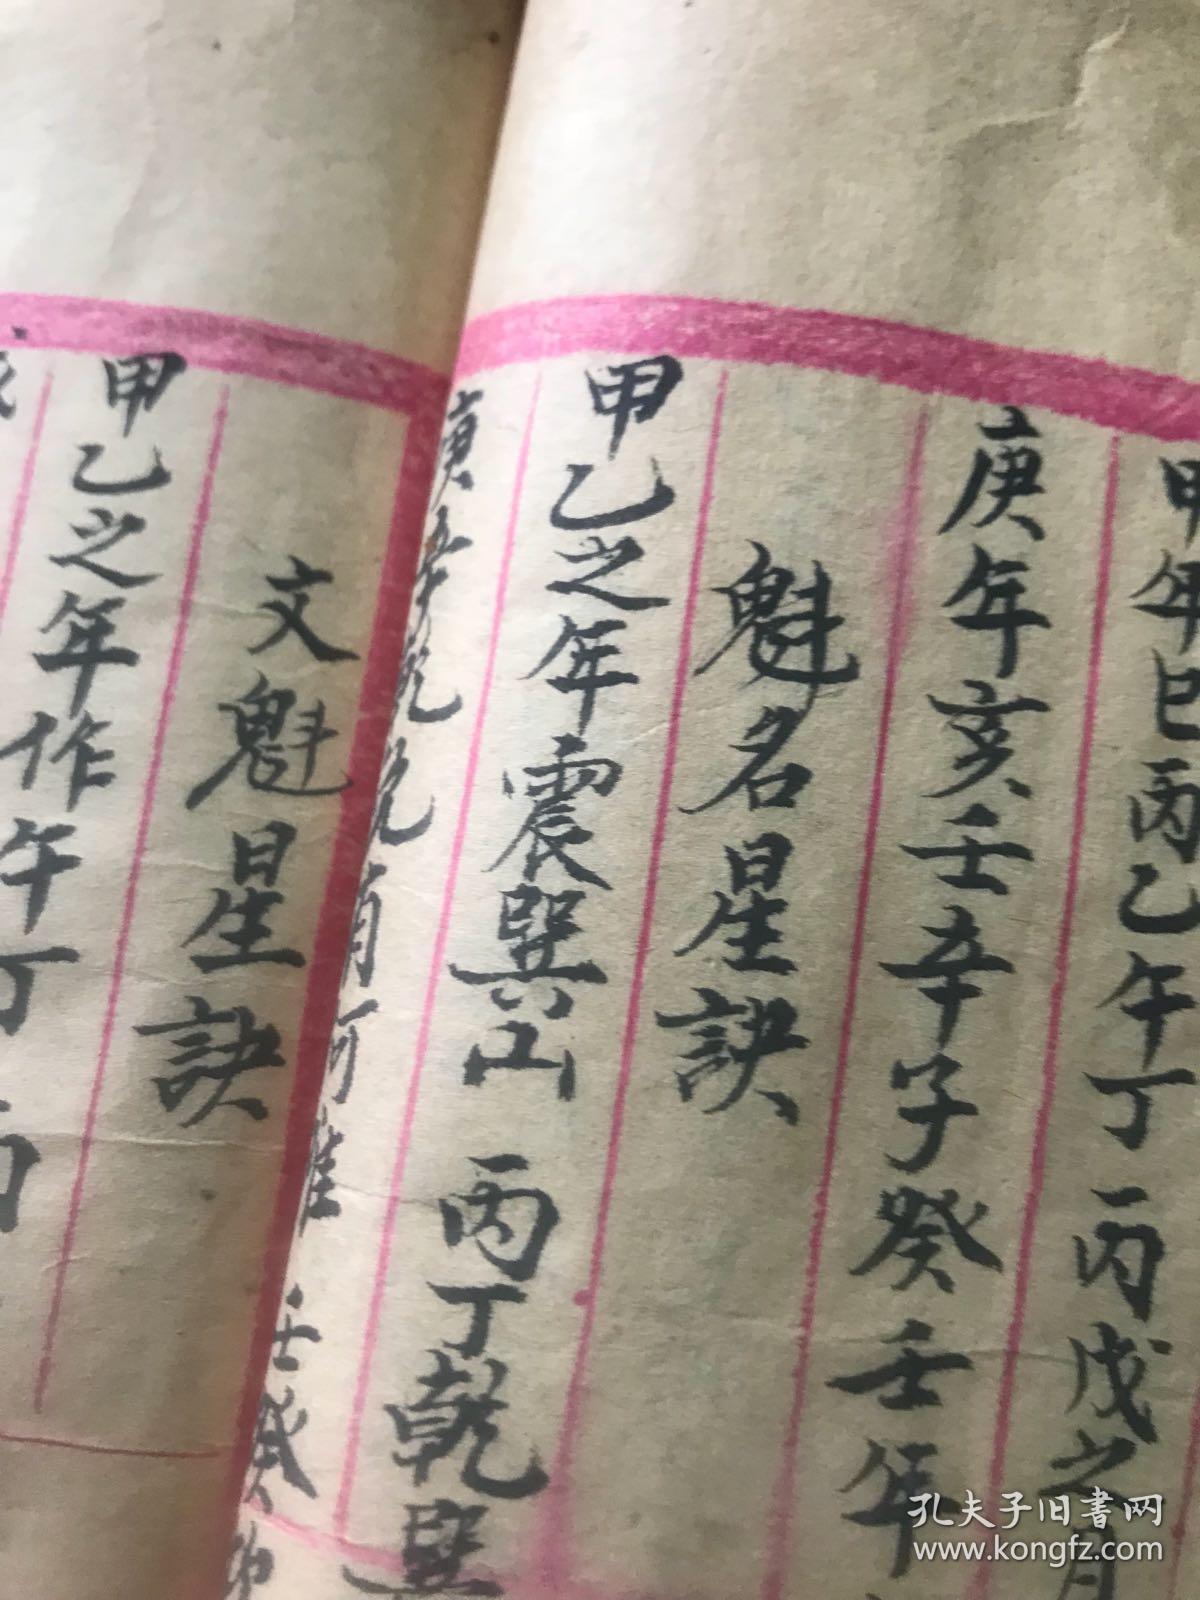 甲年巳丙乙午丁丙戊之月
庚年亥壬辛子癸壬年
魁名星訣
甲乙之年震巽山 丙丁乾巽
壬癸
文魁星訣
甲乙之年作午丁
孔夫子旧书网
www.kongfz.com